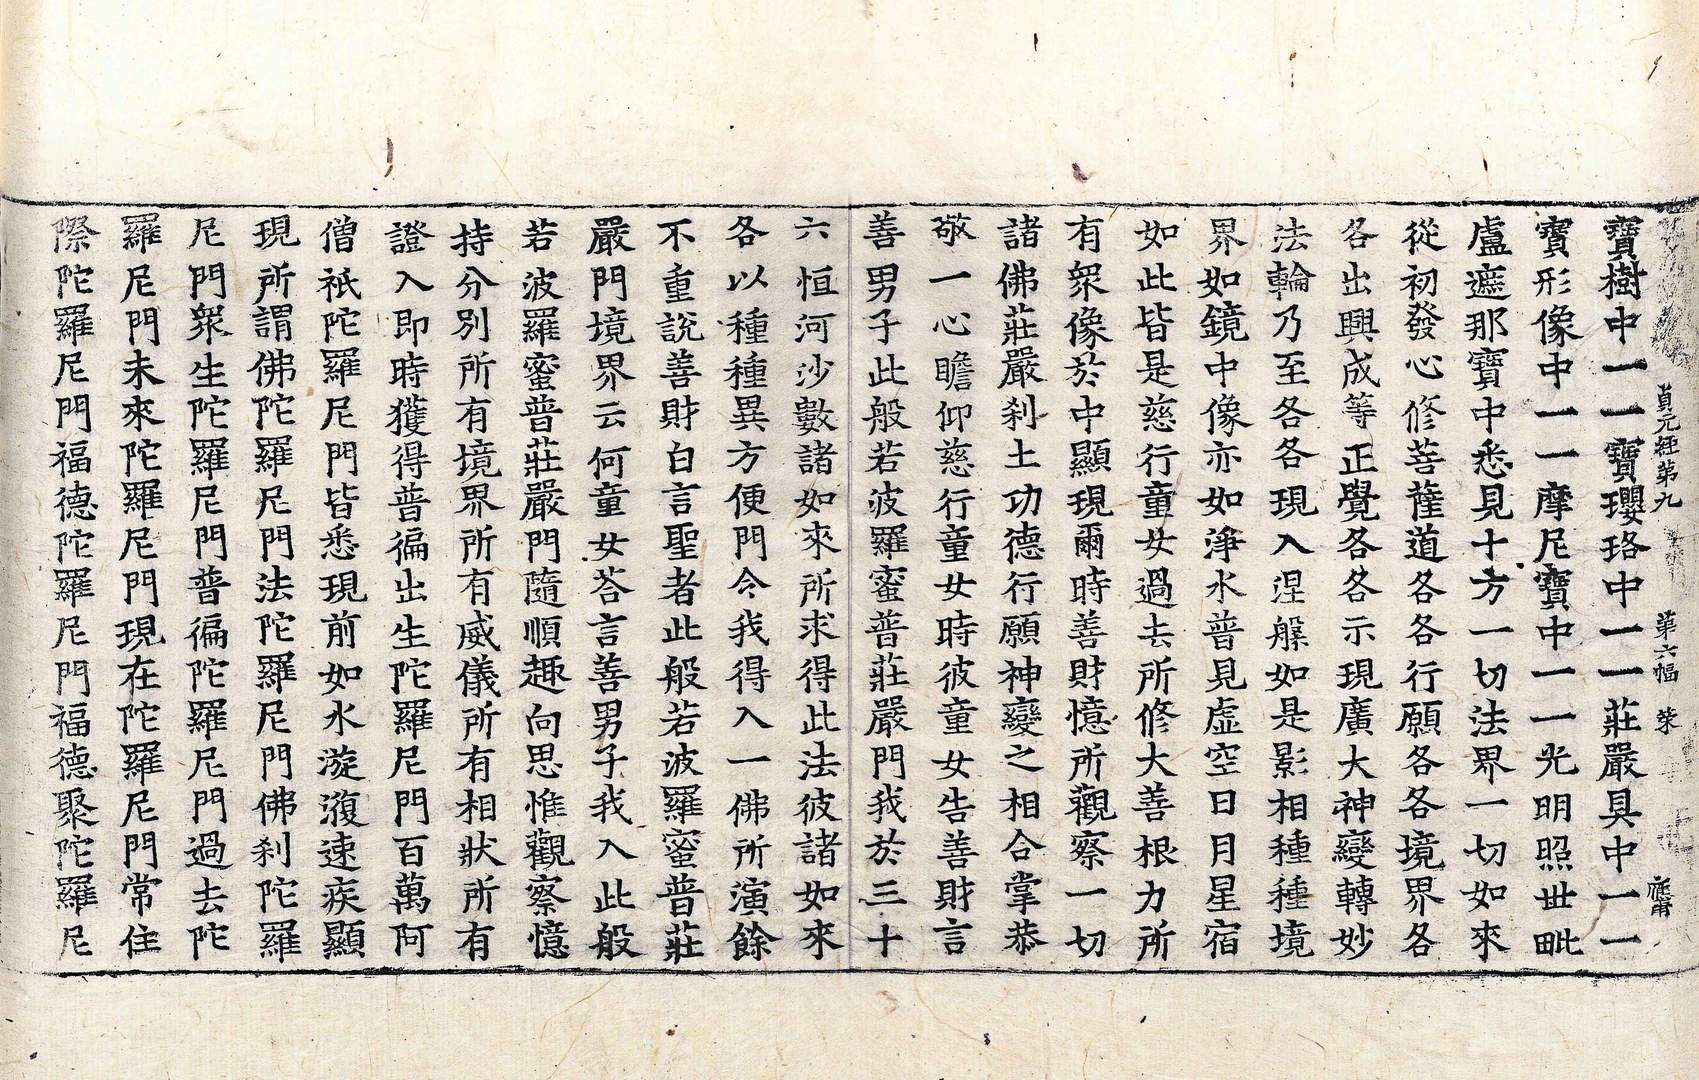 貞元經第九 第六幅 柒
寶樹中一一寶瓔珞中一一莊嚴具中一一
寶形像中一一摩尼寶中一一光明照世毗
盧遮那寶中悉見十方一切法界一切如來
從初發心修菩薩道各各行願各各境界各
各出興成等正覺各各示現廣大神變轉妙
法輪乃至各各現入涅槃如是影相種種境
界如鏡中像亦如淨水普見虛空日月星宿
如此皆是慈行童女過去所修大善根力所
有衆像於中顯現爾時善財憶所觀察一切
諸佛莊嚴刹土功德行願神變之相合掌恭
敬一心瞻仰慈行童女時彼童女告善財言
善男子此般若波羅蜜普莊嚴門我於三十
六恒河沙數諸如來所求得此法彼諸如來
各以種種異方便門令我得入一佛所演餘
不重說善財白言聖者此般若波羅蜜普莊
嚴門境界云何童女荅言善男子我入此般
若波羅蜜普莊嚴門隨順趣向思惟觀察憶
持分別所有境界所有威儀所有相狀所有
證入即時獲得普徧出生陀羅尼門百萬阿
僧祇陀羅尼門皆悉現前如水漩澓速疾顯
現所謂佛陀羅尼門法陀羅尼門佛刹陀羅
尼門衆生陀羅尼門普徧陀羅尼門過去陀
羅尼門未來陀羅尼門現在陀羅尼門常住
際陀羅尼門福德陀羅尼門福德聚陀羅尼